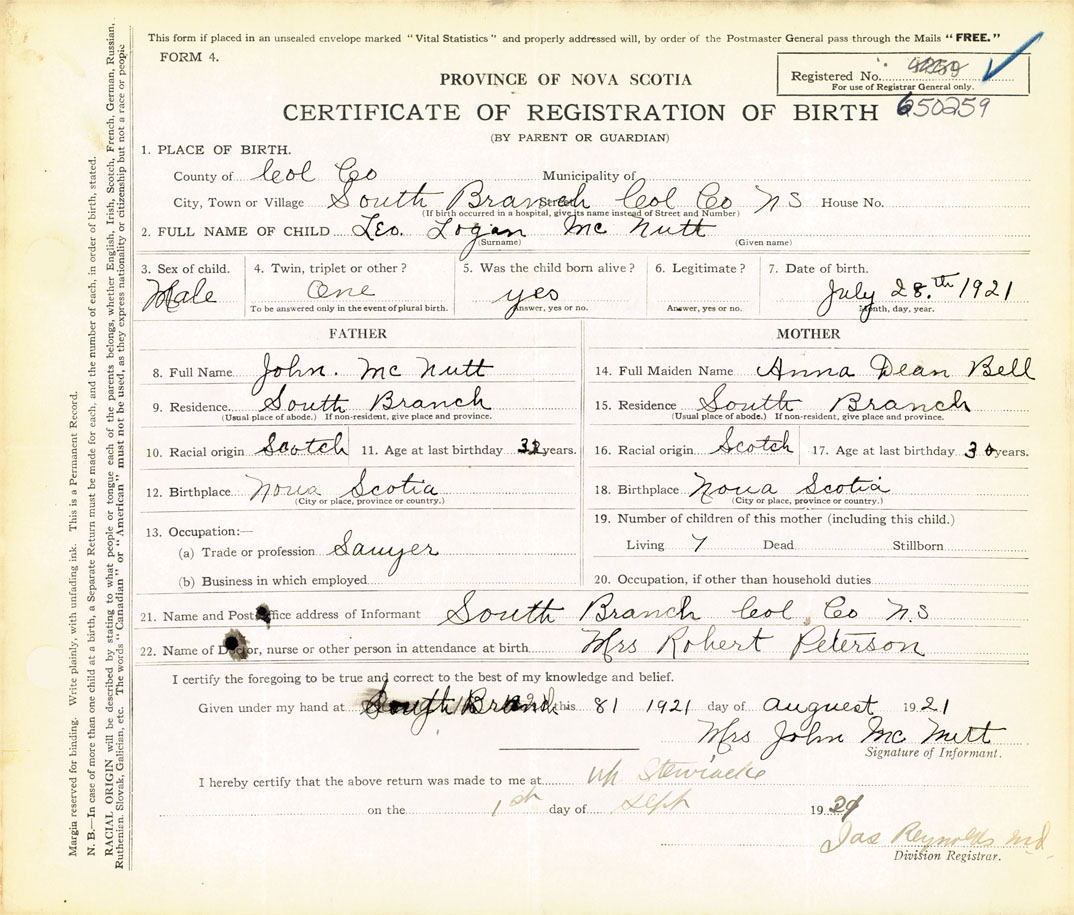 This form if placed in an unsealed envelope marked "Vital Statistics" and properly addressed will, by order of the Postmaster General pass through the Mails "FREE."
FORM 4.
Registered No.
For use of Registrar General only.
PROVINCE OF NOVA SCOTIA
CERTIFICATE OF REGISTRATION OF BIRTH 650259
(BY PARENT OR GUARDIAN)
1. PLACE OF BIRTH.
County of Col Co Municipality of
City, Town or Village South Branch Col Co NS House No.
(If birth occurred in a hospital, give its name instead of Street and Number)
2. FULL NAME OF CHILD Leo. Logan Mc Nutt
(Surname) (Given name)
3. Sex of child. 4. Twin, triplet or other? 5. Was the child born alive? 6. Legitimate? 7. Date of birth.
Male One yes July 28.th 1921
To be answered only in the event of plural birth. Answer, yes or no. Answer, yes or no. Month, day, year.
FATHER MOTHER
8. Full Name John. Mc Nutt 14. Full Maiden Name Anna Dean Bell
9. Residence South Branch 15. Residence South Branch
(Usual place of abode.) If non-resident, give place and province. (Usual place of abode.) If non-resident, give place and province.
10. Racial origin Scotch 11. Age at last birthday years. 16. Racial origin Scotch 17. Age at last birthday 30 years.
12. Birthplace Nova Scotia 18. Birthplace Nova Scotia
(City or place, province or country.) (City or place, province or country.)
13. Occupation:— 19. Number of children of this mother (including this child.)
(a) Trade or profession Sawyer Living 7 Dead Stillborn
(b) Business in which employed 20. Occupation, if other than household duties
21. Name and Post Office address of Informant South Branch Col. Co N.S
22. Name of Doctor, nurse or other person in attendance at birth Mrs Robert Peterson
I certify the foregoing to be true and correct to the best of my knowledge and belief.
Given under my hand at South Branch this 81 1921 day of auguest 1921
Mrs John Mc Nutt
Signature of Informant.
I hereby certify that the above return was made to me at up Stewiacke
on the 1st day of Sept 19
Jas Reynolds Md.
Division Registrar.
Margin reserved for binding. Write plainly, with unfading ink. This is a Permanent Record.
N. B.—In case of more than one child at a birth, a Separate Return must be made for each, and the number of each, in order of birth, stated.
RACIAL ORIGIN will be described by stating to what people or tongue each of the parents belongs, whether English, Irish, Scotch, French, German, Russian,
Ruthenian, Slovak, Galician, etc. The words "Canadian" or "American" must not be used, as they express nationality or citizenship but not a race or people